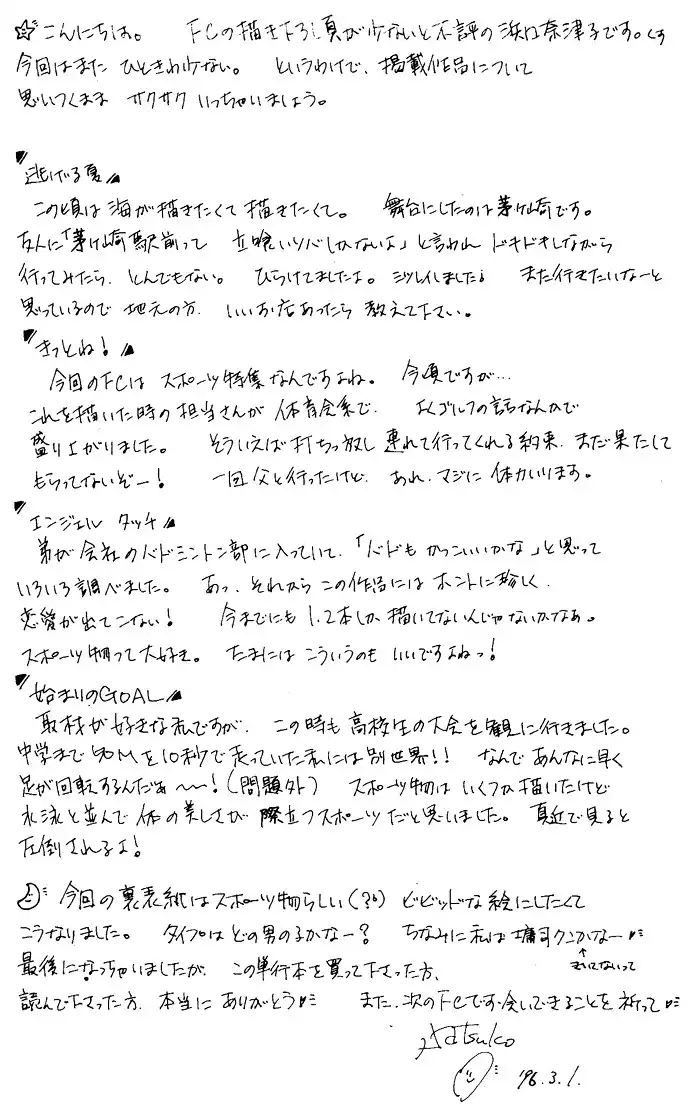 ☆こんにちは。 FCの描き下ろし頁が少ないと不評の浜口奈津子です。くす
今回はまた ひときわ少ない。 というわけで、掲載作品について
思いつくまま サクサク いっちゃいましょう。
"逃げる夏"
この頃は海が描きたくて描きたくて。 舞台にしたのは茅ヶ崎です。
友人に「茅ヶ崎駅前って 立喰いソバしかないよ」と言われ ドキドキしながら
行ってみたら、とんでもない。 ひらけてましたよ。シツレイしました。 また行きたいなーと
思っているので 地元の方、いいお店あったら 教えて下さい。
"きっとね!"
今回のFCは スポーツ特集なんですよね。 今頃ですが…
これを描いた時の担当さんが 体育会系で、 よくゴルフの話なんかで
盛り上がりました。 そういえば打ちっ放し 連れて行ってくれる約束、まだ果たして
もらってないぞー! 一回 父と行ったけど、 あれ、マジに 体力いります。
"エンジェル タッチ"
弟が会社のバドミントン部に入っていて、「バドも かっこいいかな」と思って
いろいろ調べました。 あっ、それから この作品には ホントに珍しく、
恋愛が出てこない! 今までにも 1、2本しか描いてないんじゃないかなぁ。
スポーツ物って大好き。 たまには こういうのも いいですよねっ!
"始まりのGOAL"
取材が好きな私ですが、 この時も高校生の大会を観に行きました。
中学まで50Mを10秒で走っていた私には別世界!! なんで あんなに早く
足が回転するんだぁ〜〜!(問題外) スポーツ物は いくつか描いたけど
水泳と並んで 体の美しさが 際立つスポーツだと思いました。 真近で見ると
圧倒されるよ!
今回の裏表紙はスポーツ物らしい(?) ビビッドな絵にしたくて
こうなりました。 タイプはどの男のコかなー? ちなみに私は 司クンかなー
きいてないって
最後になっちゃいましたが、 この単行本を買って下さった方、
読んで下さった方、本当に ありがとう また、次のFCでお会いできることを祈って
Natsuko
'96.3.1.